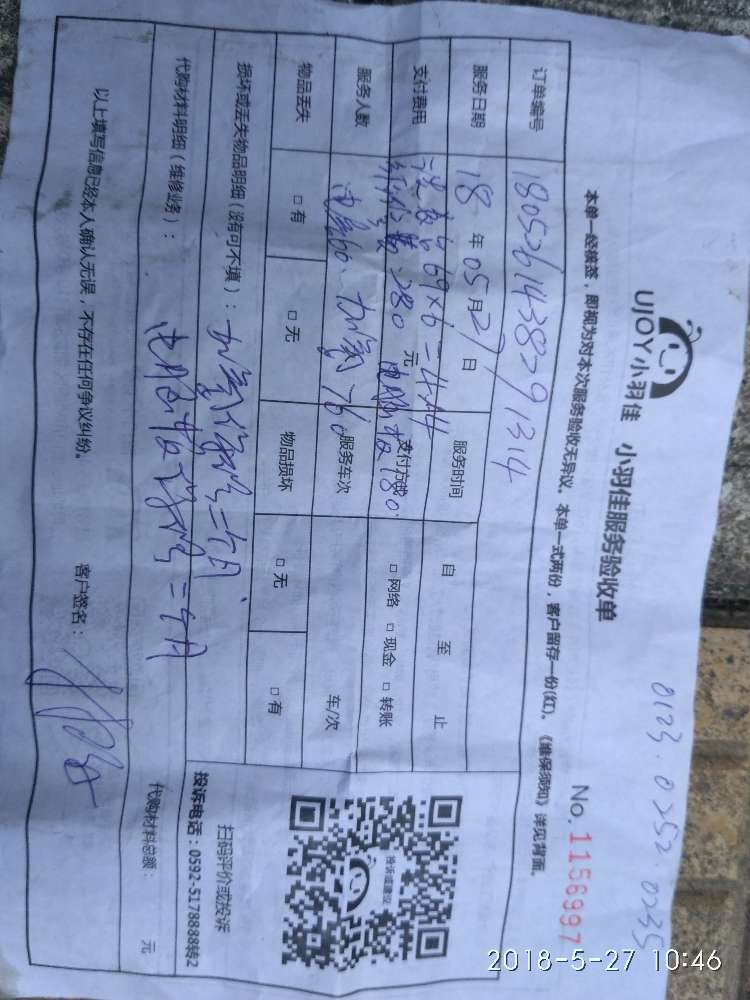 0123.0252 0235
UJOY小羽佳 小羽佳服务验收单
No.1156997
本单一经接签，即视为对本次服务验收无异议。本单一式两份，客户留存一份(红)。《维保须知》详见背面。
订单编号 1805261438791314
服务日期 18 年 05 月 27 日 服务时间 自 至 止
支付费用 洗 69×6=414
280 元 180 支付方式 □ 网络 □ 现金 □ 转账
服务人数 电容60. 加氟760 服务车次 车/次
物品丢失 □ 有 □ 无 物品损坏 □ 无 □ 有
损坏或丢失物品明细（没有可不填）： 加氟保修二个月.
代购材料明细（维修业务）： 电脑板保修三个月
代购材料总额： 元
投诉或建议
扫码评价或投诉
投诉电话：0592-5178888转2
以上填写信息已经本人确认无误，不存在任何争议纠纷。 客户签名：
2018-5-27 10:46